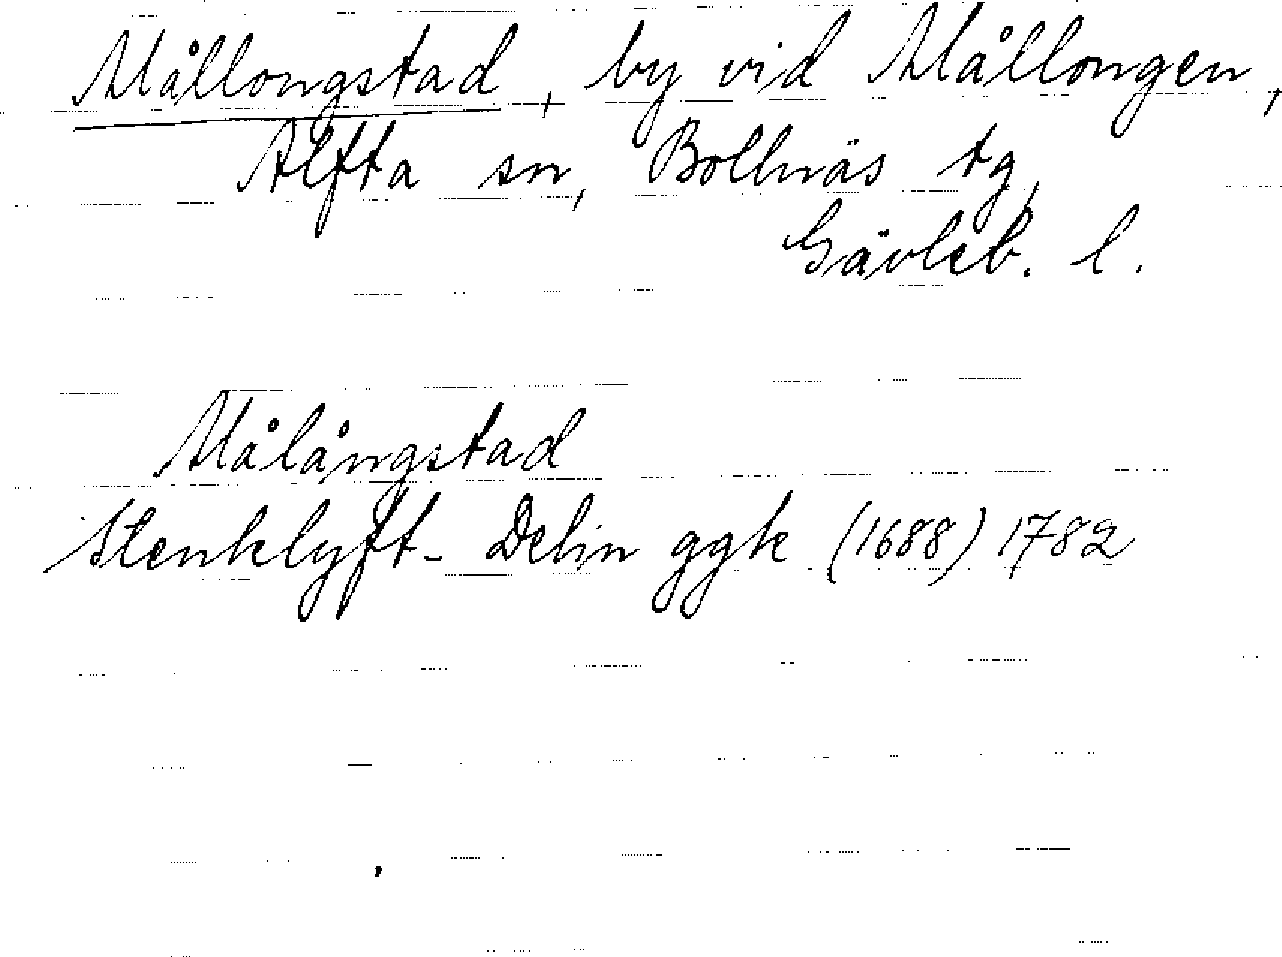 Mållongstad, by vid Mållongen,
Alfta sn, Bollnäs tg,
Gävleb. l.
Målångstad
Stenklyft- Delin ggk (1688) 1782